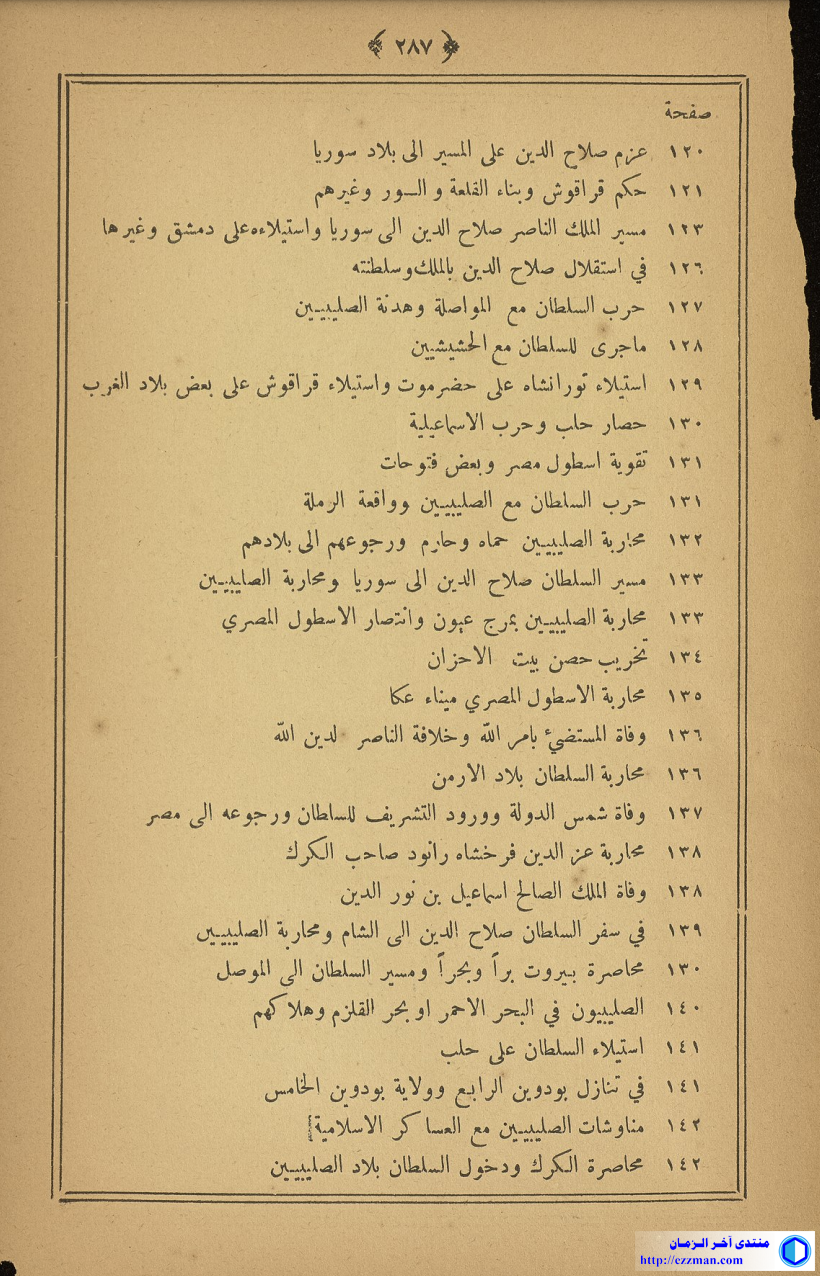 ﴿ ٢٨٧ ﴾
صفحة
١٢٠ عزم صلاح الدين على المسير الى بلاد سوريا
١٢١ حكم قراقوش وبناء القلعة والسور وغيرهم
١٢٣ مسير الملك الناصر صلاح الدين الى سوريا واستيلاءه على دمشق وغيرها
١٢٦ في استقلال صلاح الدين بالملك وسلطنته
١٢٧ حرب السلطان مع المواصلة وهدنة الصليبيين
١٢٨ ماجرى للسلطان مع الحشيشيين
١٢٩ استيلاء تورانشاه على حضرموت واستيلاء قراقوش على بعض بلاد الغرب
١٣٠ حصار حلب وحرب الاسماعيلية
١٣١ تقوية اسطول مصر وبعض فتوحات
١٣١ حرب السلطان مع الصليبيين وواقعة الرملة
١٣٢ محاربة الصليبيين حماه وحارم ورجوعهم الى بلادهم
١٣٣ مسير السلطان صلاح الدين الى سوريا ومحاربة الصليبيين
١٣٣ محاربة الصليبيين بمرج عيون وانتصار الاسطول المصري
١٣٤ تخريب حصن بيت الاحزان
١٣٥ محاربة الاسطول المصري ميناء عكا
١٣٦ وفاة المستضئ بامر الله وخلافة الناصر لدين الله
١٣٦ محاربة السلطان بلاد الارمن
١٣٧ وفاة شمس الدولة وورود التشريف للسلطان ورجوعه الى مصر
١٣٨ محاربة عز الدين فرخشاه رانود صاحب الكرك
١٣٨ وفاة الملك الصالح اسماعيل بن نور الدين
١٣٩ في سفر السلطان صلاح الدين الى الشام ومحاربة الصليبيين
١٣٠ محاصرة بيروت براً وبحراً ومسير السلطان الى الموصل
١٤٠ الصليبيون في البحر الاحمر او بحر القلزم وهلاكهم
١٤١ استيلاء السلطان على حلب
١٤١ في تنازل بودوين الرابع وولاية بودوين الخامس
١٤٢ مناوشات الصليبيين مع العساكر الاسلامية
١٤٢ محاصرة الكرك ودخول السلطان بلاد الصليبيين
منتدى آخر الزمان
http://ezzman.com